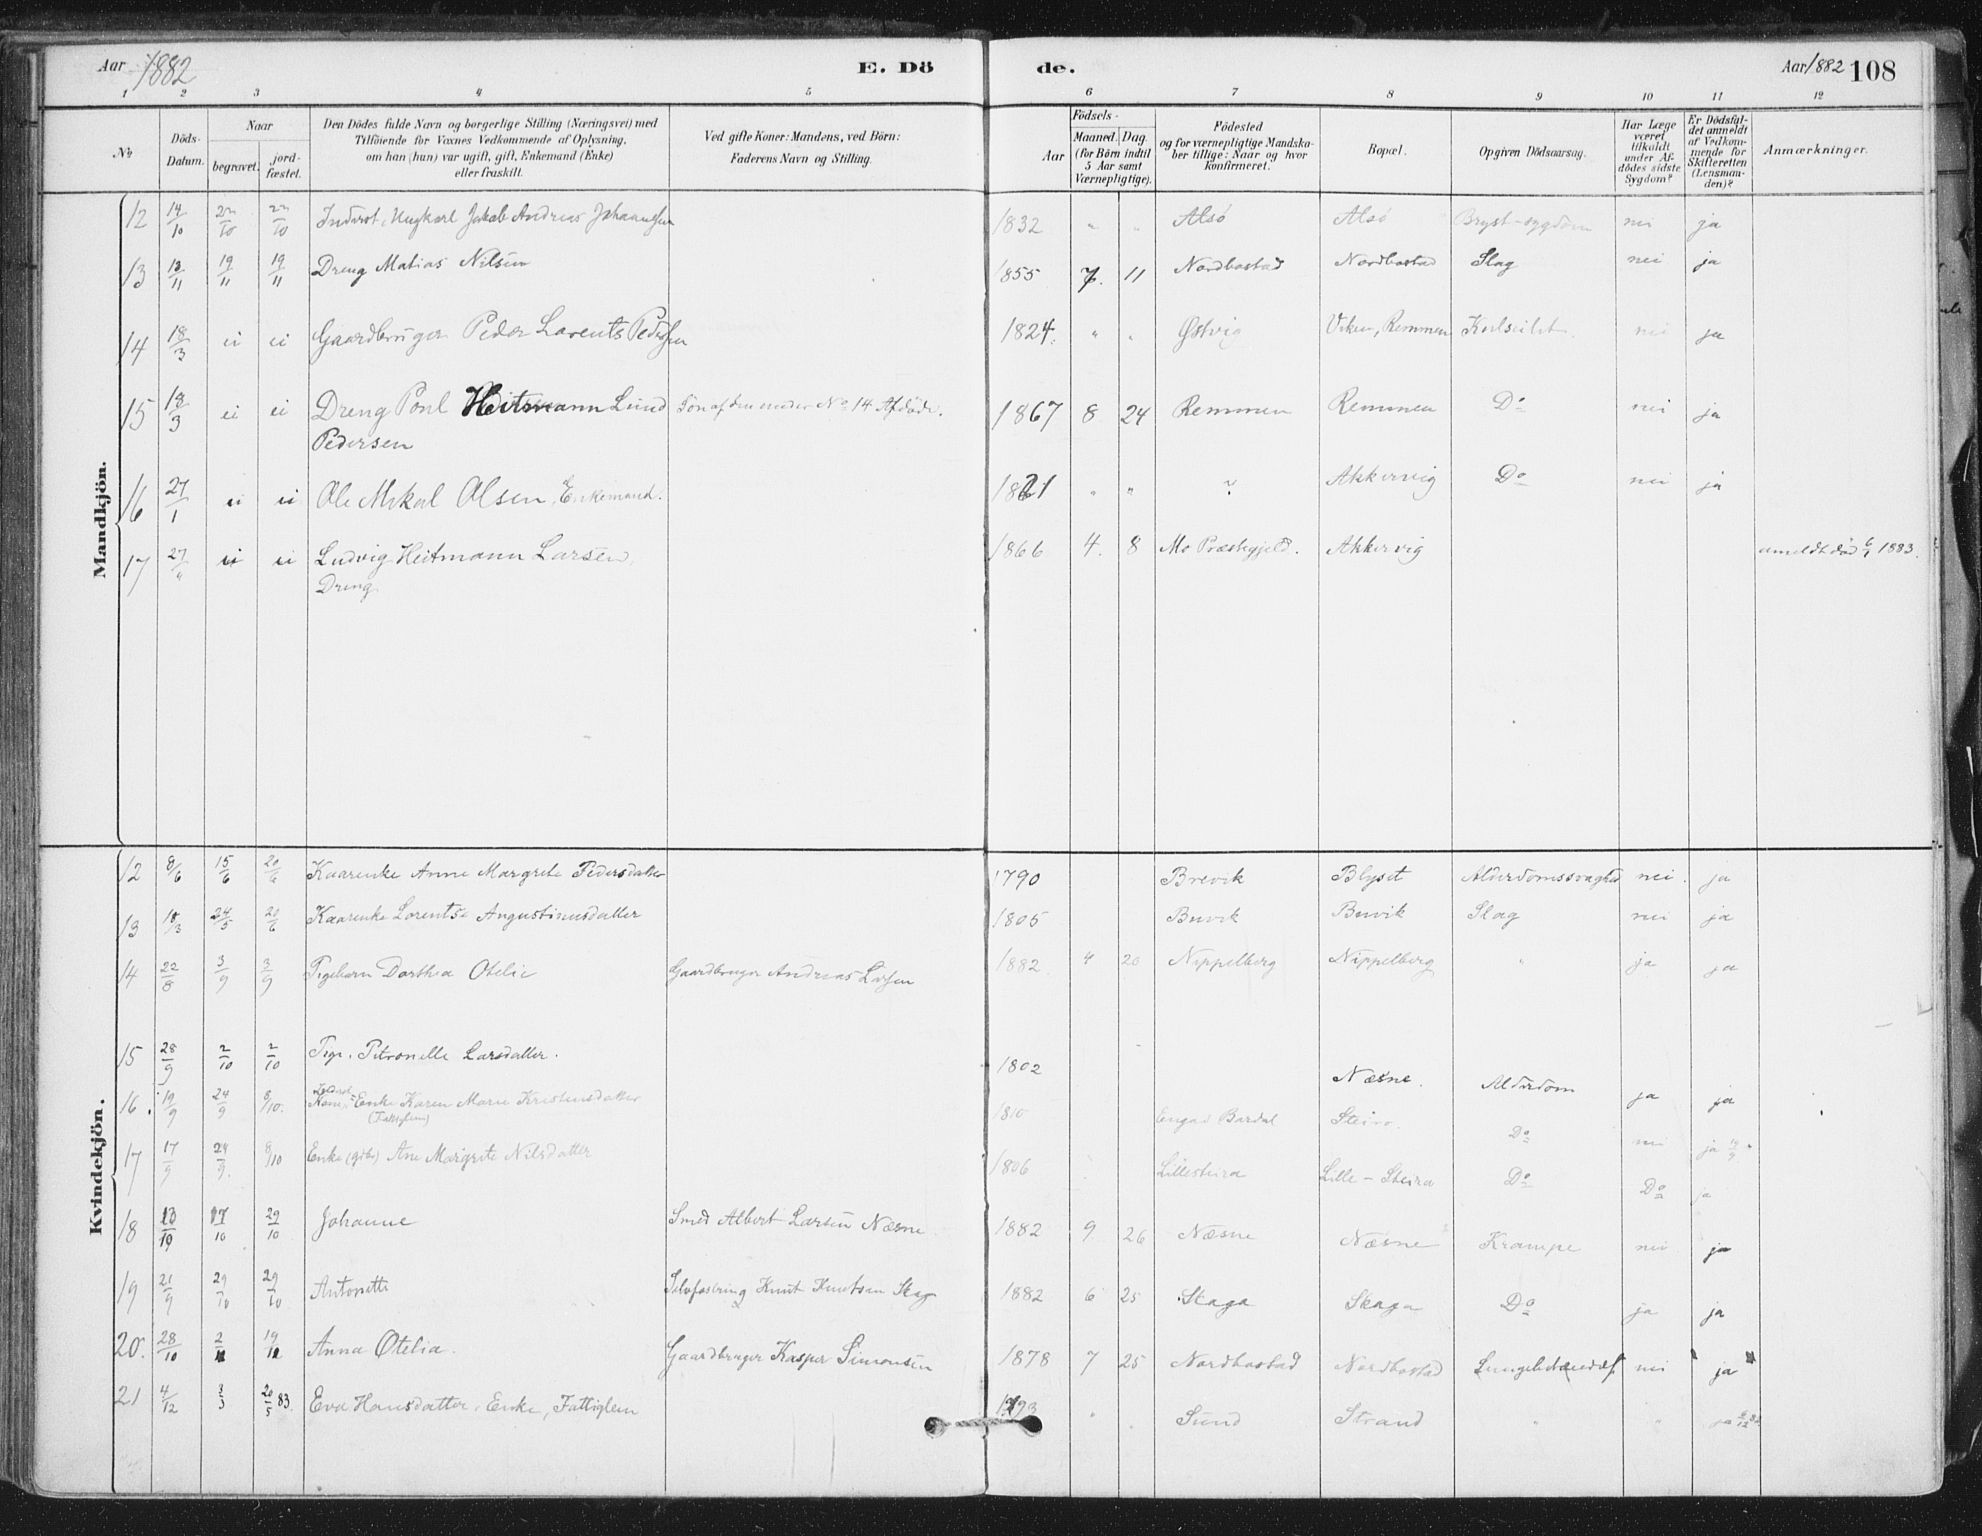 Aar 1882 E. Dö de. Aar 1882 108
1 2 3 4 5 6 7 8 9 10 11 12
No. Döds-Datum. Naar begravet. jord-fæstet. Den Dödes fulde Navn og borgerlige Stilling (Næringsvei) med Tilföiende for Voxnes Vedkommende af Oplysning, om han (hun) var ugift, gift, Enkemand (Enke) eller fraskilt. Ved gifte Koner: Mandens, ved Börn: Faderens Navn og Stilling. Födsels- Aar Maaned. Dag. (for Börn indtil 5 Aar samt Værnepligtige). Födested og for værnepligtige Mandskaber tillige: Naar og hvor konfirmeret. Bopæl. Opgiven Dödsaarsag. Har Læge været tilkaldt under Afdödes sidste Sygdom? Er Dödsfaldet anmeldt af Vedkommende for Skifteretten (Lensmanden)? Anmærkninger.
Mandkjön.
12 14/10 22/10 22/10 Inderst, Ungkarl Jakob Andreas Johannessen 1832 " " Alsö Alsö Bryst-sygdom nei ja
13 13/11 19/11 19/11 Dreng Matias Nilsen 1855 7. 11 Nordbostad Nordbostad Slag nei ja
14 18/3 ei ei Gaardbruger Peder Lorents Pedersen 1824. " " Østvig Viken, Remmen Kulseilet. nei ja
15 18/3 ei ei Dreng Poul Heitmann Lund Sön af den under No 14 Afdöde. 1867 8 24 Remmen Remmen Do nei ja
Pedersen
16 27/1 ei ei Ole Mikal Olsen, Enkemand. 1821 " " ? Akkervig Do nei ja
17 27/" ei ei Ludvig Heitmann Larsen, 1866 4. 8 Mo Præstegjeld. Akkervig anmeldt död 6/1 1883.
Dreng
Kvindekjön.
12 8/6 15/6 20/6 Kaarenke Anne Margrete Pedersdatter 1790 Brevik Blyset Alderdomssvaghed nei. ja
13 18/3 24/5 20/6 Kaarenke Lorentse Angustinusdatter 1805 Buvik Buvik Slag nei ja
14 22/8 3/9 3/9 Pigebarn Dorthea Otelie Gaardbruger Andreas Larsen 1882. 4 20 Nippelberg Nippelberg " ja ja
15 28/9 2/10 2/10 Pige. Petronelle Larsdatter. 1802 Næsne. Alderdom ja ja
16. 19/9 24/9 8/10. Enke Karen Marie Kristensdatter 1810 Engan Bardal Steiro. Do nei ja
(Fattiglem)
17 17/9 24/9. 8/10 Enke (gdb) Ane Margrete Nilsdatter 1806 Lillesteira Lille-Steira Do Do ja
18 13/10 17/10 29/10 Johanne Smed Albert Larsen Næsne 1882 9 26 Næsne Næsne Krampe nei ja
19 21/9 29/10 29/10 Antonette Selvfostring Knut Knutsen Skag 1882 6 25 Skaga Skaga Do ja ja
20. 28/10 2/11 19/11 Anna Otelia. Gaardbruger Kasper Simonsen 1878 7 25 Nordbostad Nordbostad Lungebetændelse nei ja
21 4/12 3/3 20/5 83 Eva Hansdatter, Enke, Fattiglem 1793 " " Sund Strand " " ja 6/12 82